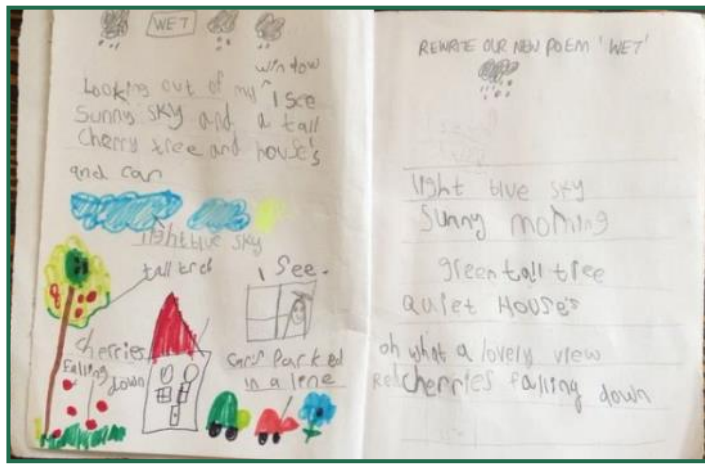 WET
window
Looking out of my ^ I see
Sunny sky and a tall
Cherry tree and house's
and car
light blue sky
tall tree
I See.
Cherries
falling
down
Cars Parked
in a line
REWRITE OUR NEW POEM 'WET'
light blue sky
Sunny morning
green tall tree
QUIET HOUSE'S
oh what a lovely view
Red cherries falling down